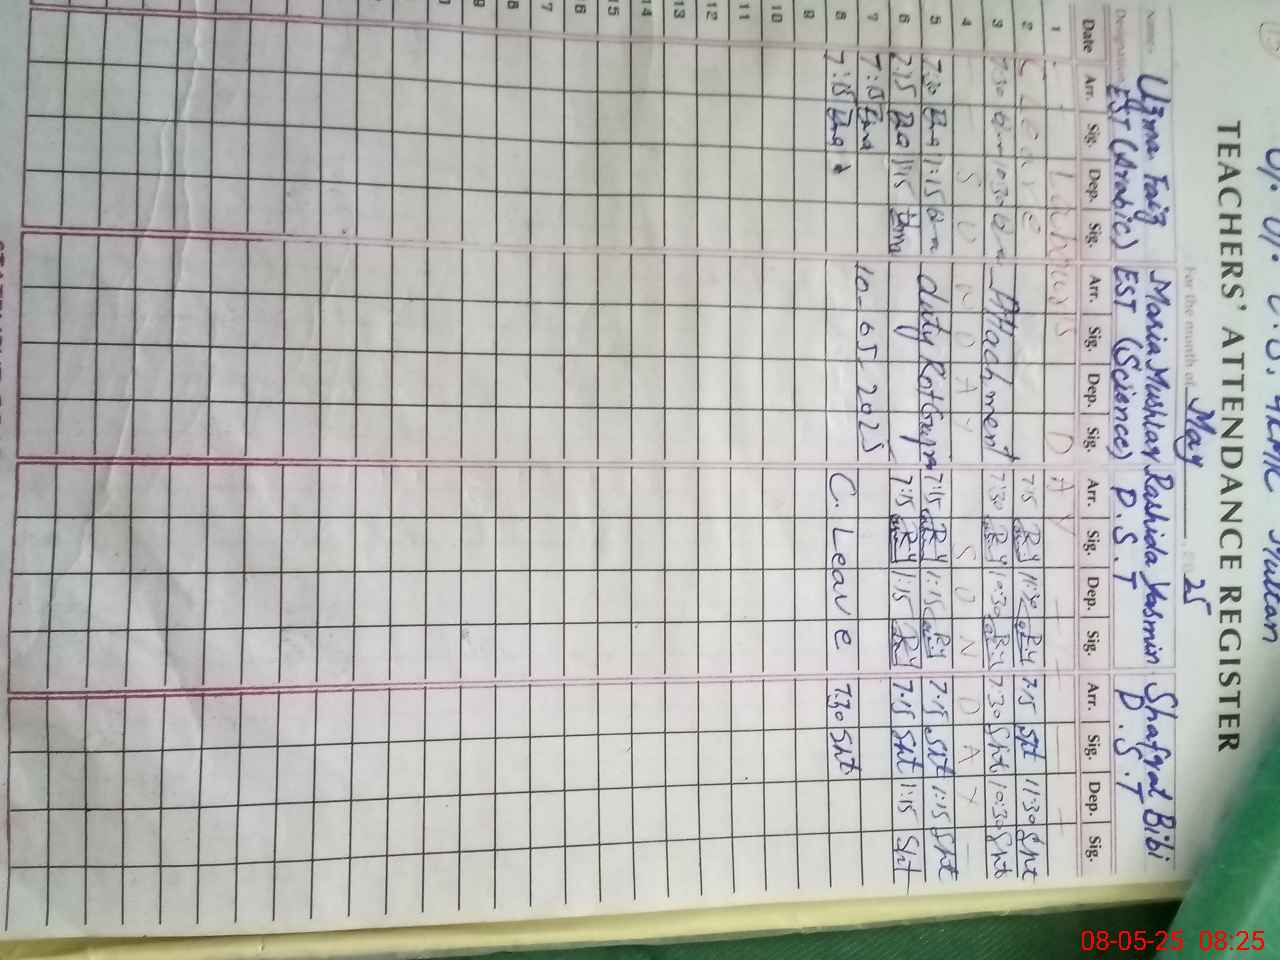 TEACHERS' ATTENDANCE REGISTER
For the month of May 25
Name:- Uzma Faiz Maria Mushtaq Rashida Yasmin Shafqat Bibi
EST (Arabic) EST (Science) P.S.T P.S.T
Date Arr. Sig. Dep. Sig. Arr. Sig. Dep. Sig. Arr. Sig. Dep. Sig. Arr. Sig. Dep. Sig.
1 Labour's DAY
2 C Leave 7:15 RY 11:30 RY 7:15 Sht 11:30 Sht
3 7:30 10:30 Attachment 7:30 RY 10:30 RY 7:30 Sht 10:30 Sht
4 SUNDAY SUNDAY
5 7:30 11:15 duty 7:15 RY 1:15 RY 7:15 Sht 1:15 Sht
6 7:15 1:15 7:15 RY 1:15 RY 7:15 Sht 1:15 Sht
7 7:15 10-05-2025
8 7:15 C. Leave 7:30 Sht
9
10
11
12
13
14
15
16
17
18
19
08-05-25 08:25